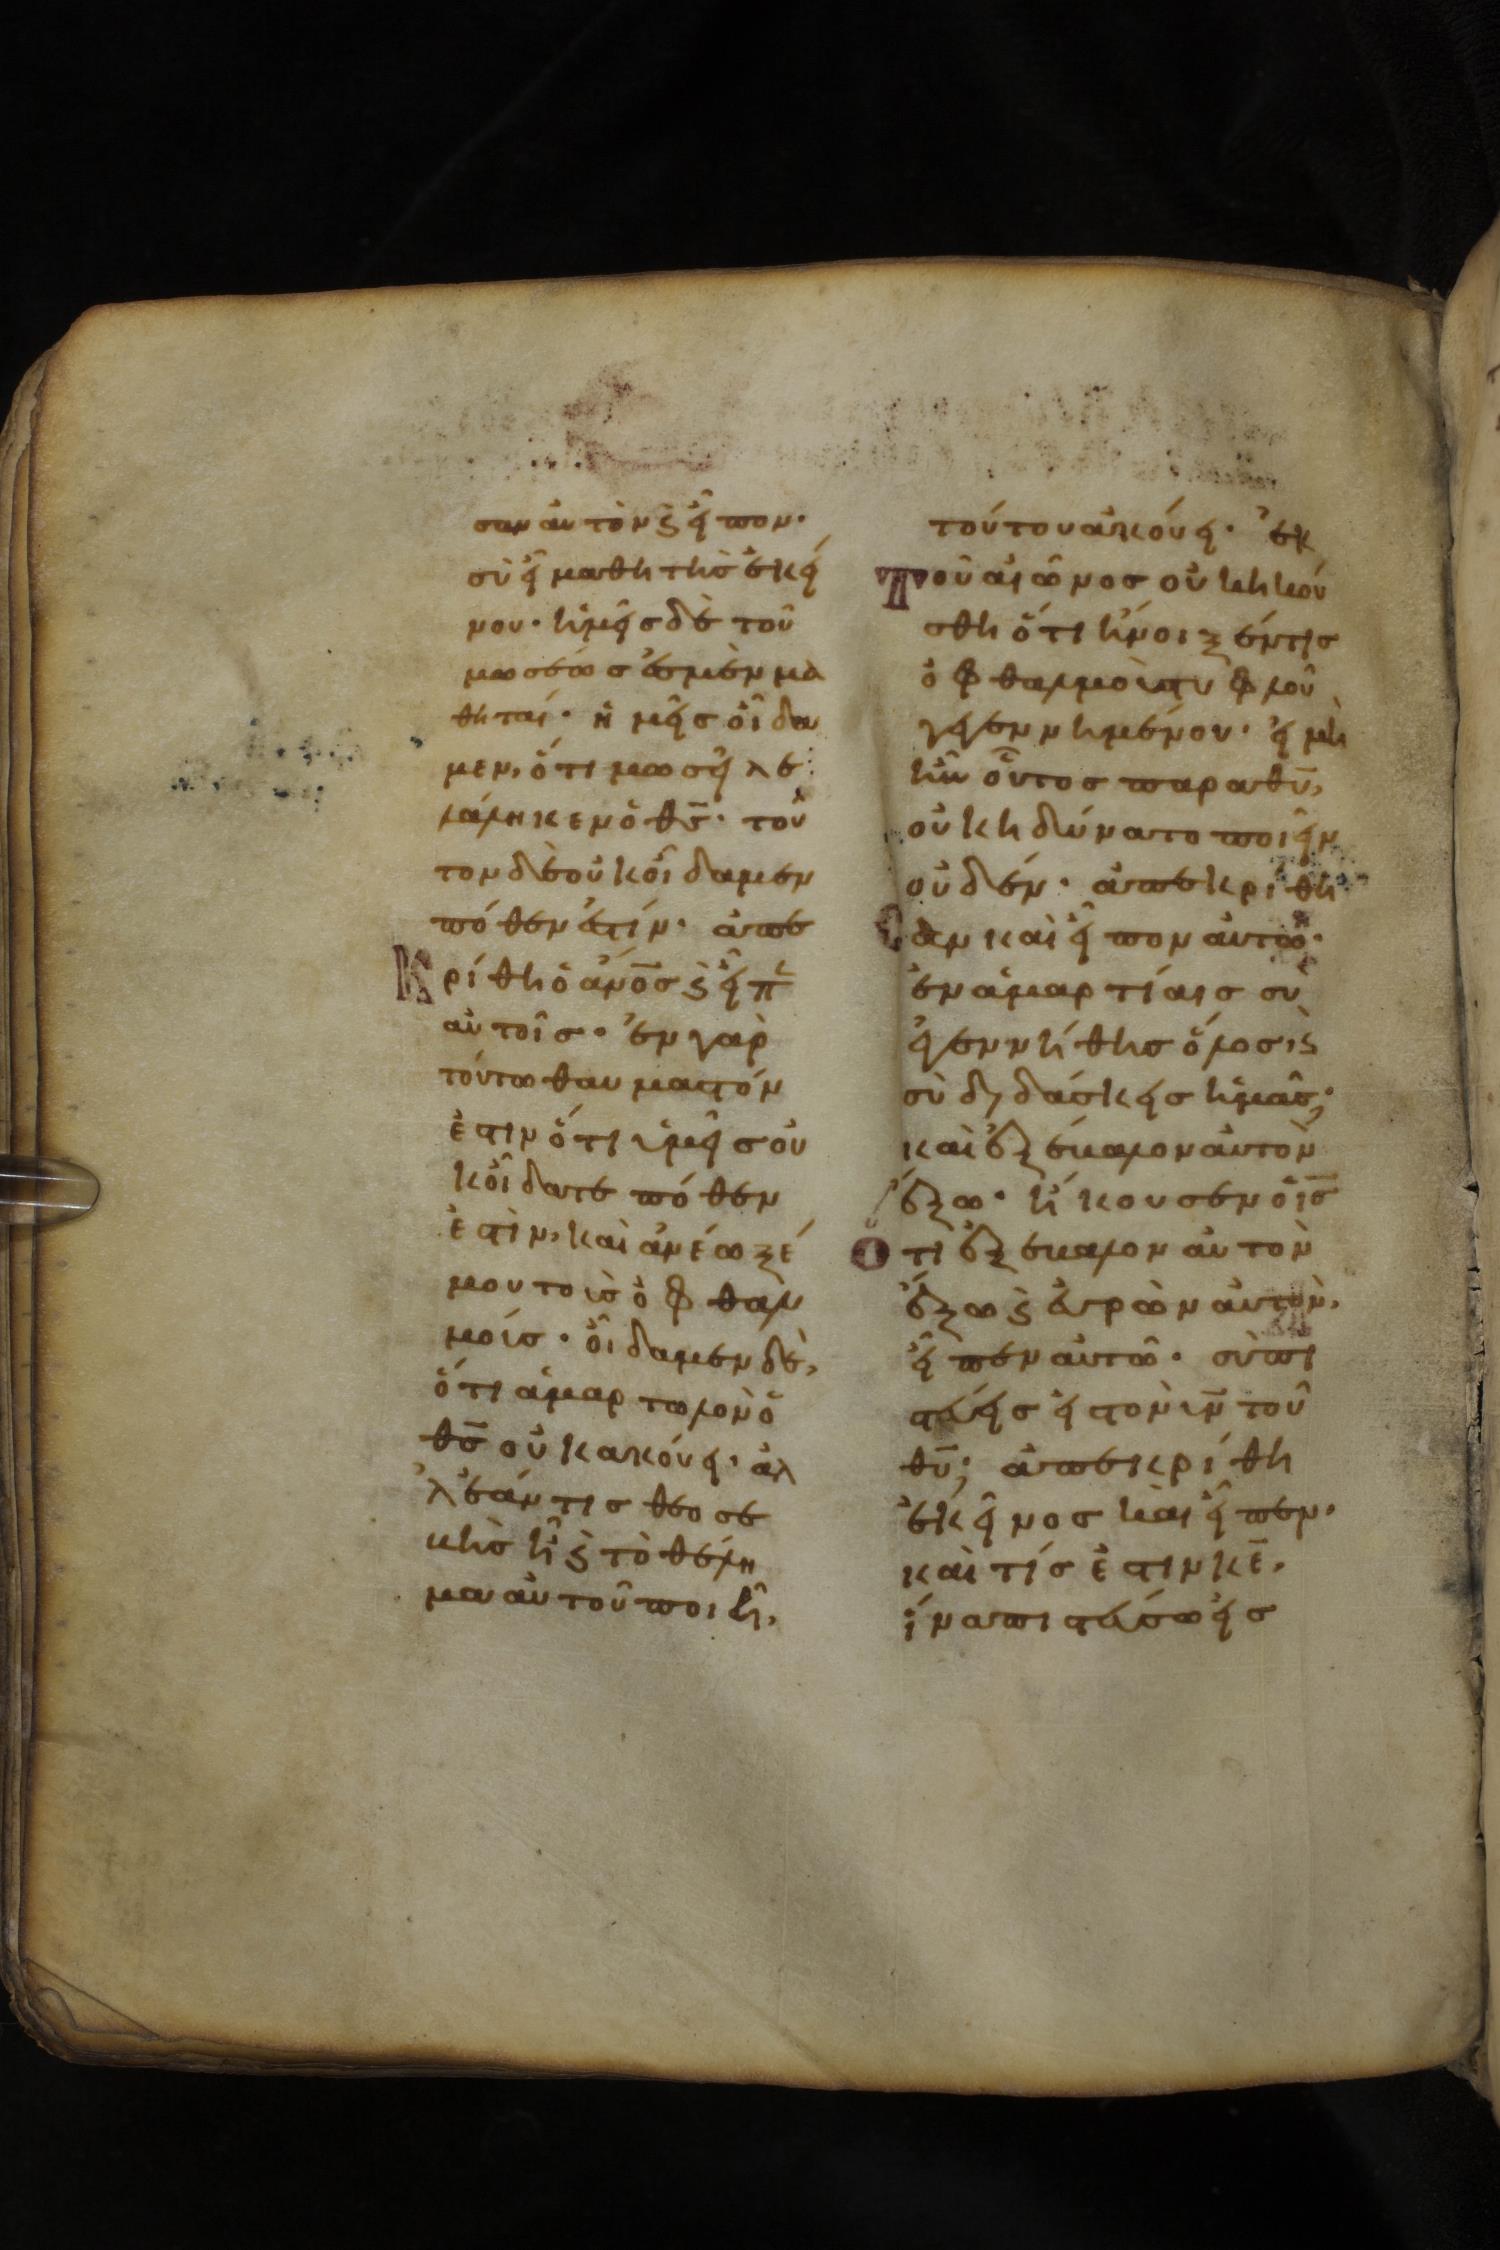 σαν αὐτὸν ϗ εἶπον·
σὺ εἶ μαθητὴς ἐκεί
νου· ἡμεῖς δὲ τοῦ
μωσέως ἐσμὲν μα
θηταί· ἡμεῖς οἴδα
μεν, ὅτι μωσεῖ λε
λάληκεν ὁ θς̅· τοῦ
τον δὲ οὐκ οἴδαμεν
πόθεν ἐστίν· ἀπε
κρίθη ὁ ἀνο̅ς ϗ εἶπ
αὐτοῖς· ἐν γὰρ
τούτω θαυμαστόν
ἐστιν ὅτι ὑμεῖς οὐ
κ οἴδατε πόθεν
ἐστὶν, καὶ ἀνέωξέ
μου τοὺς ὀφθαλ
μοίς· οἴδαμεν δὲ,
ὅτι ἁμαρτωλὸν ὁ
θς̅ οὐκ ἀκούει· ἀλ
λ' ἐάν τις θεοσε
κὴς ἦ ϗ τὸ θέλη
μα αὐτοῦ ποιῆ,
τούτου ἀκούει· ἐκ
τοῦ αἰῶνος οὐκ ἠκού
σθη ὅτι ἤνοιξέν τις
ὀφθαλμοὺς τυφλοῦ
γεγεννημένου· εἰ μὴ
ἦν οὗτος παρα θυ̅,
οὐκ ἠδύνατο ποιεῖν
οὐδέν· ἀπεκρίθη
σαν καὶ εἶπον αὐτῶ·
ἐν ἁμαρτίαις σὺ
ἐγεννήθης ὅλος, ϗ
σὺ διδάσκεις ἡμᾶς;
καὶ ἐξέβαλον αὐτὸν
ἔξω· ἤκουσεν ὁ ις̅
ὅτι ἐξέβαλον αὐτὸν
ἔξω ϗ εὑρὼν αὐτὸν,
εἶπεν αὐτῶ· σὺ πι
στεύεις εἰς τὸν υν̅ τοῦ
θυ̅; ἀπεκρίθη
ἐκεῖνος καὶ εἶπεν·
καὶ τίς ἐστιν κε̅,
ἵνα πιστεύσω εἰς